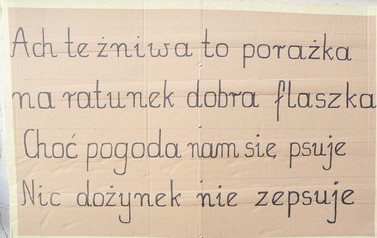 Ach te żniwa to porażka
na ratunek dobra flaszka
Choć pogoda nam się psuje
Nic dożynek nie zepsuje